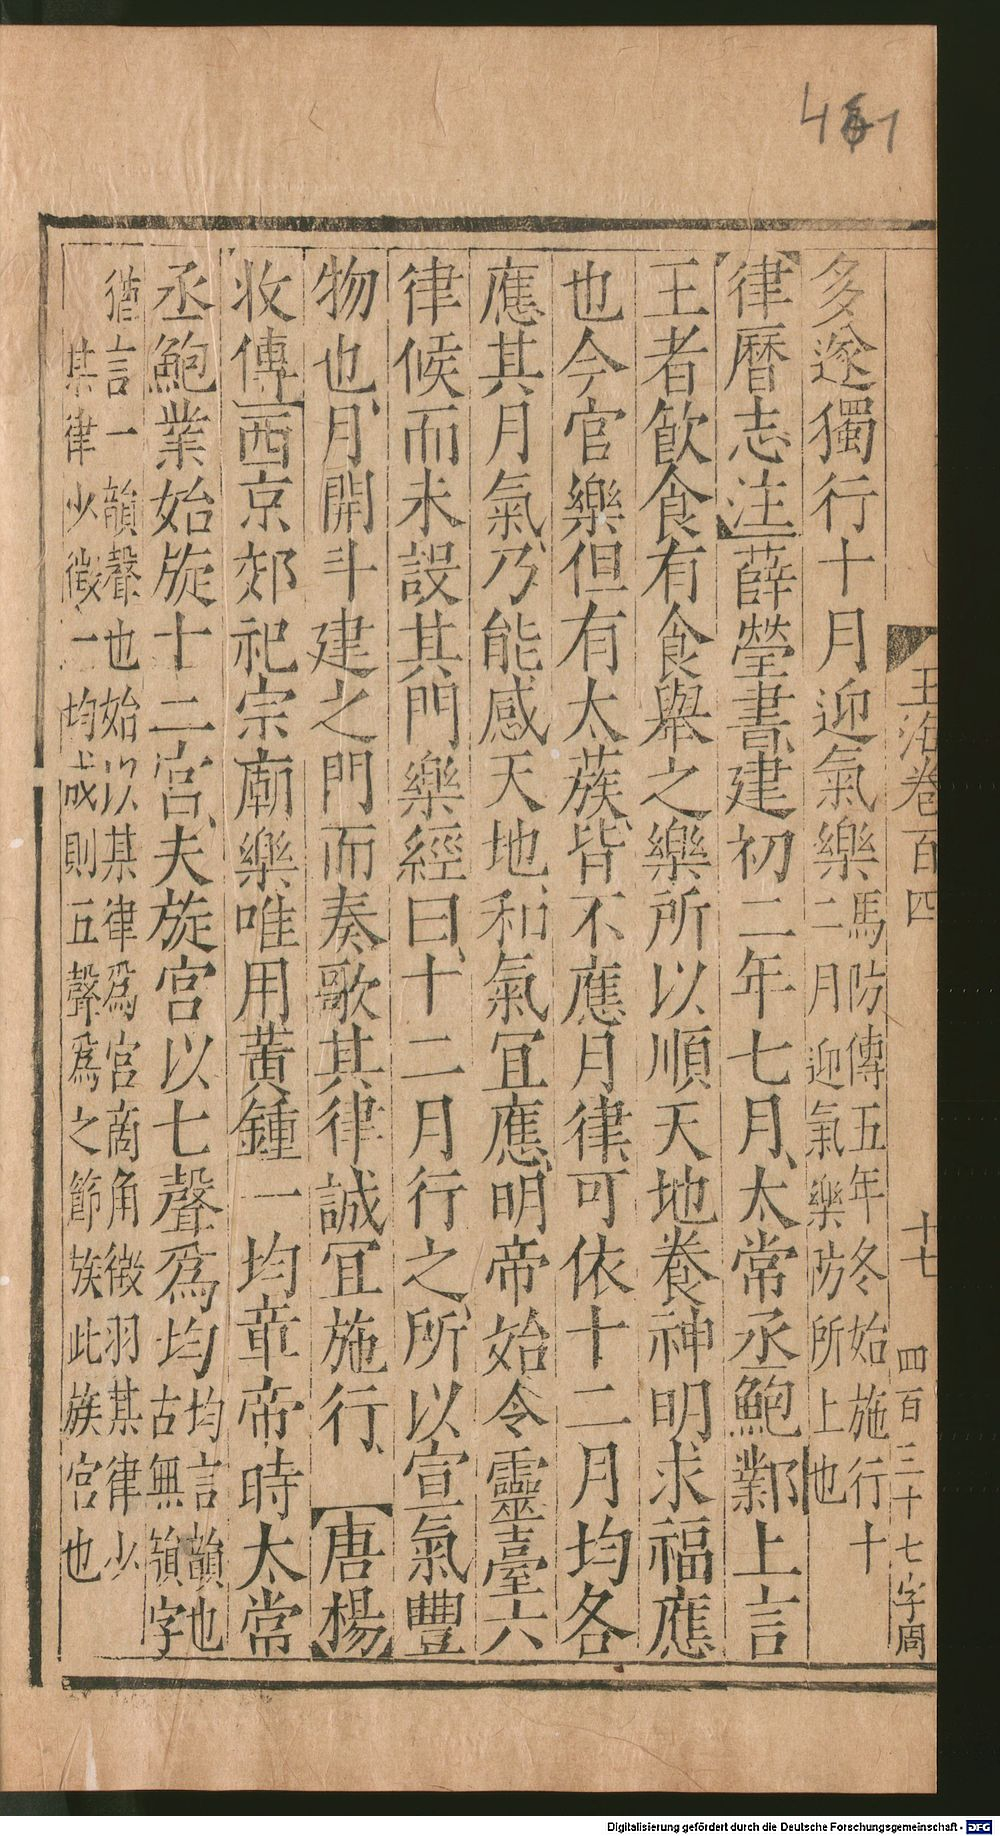 441
玉海卷百四 十七 四百三十七字周
多遂獨行十月迎氣樂馬防傳五年冬始施行十
二月迎氣樂防所上也
律曆志注薛瑩書建初二年七月太常丞鮑鄴上言
王者飲食有食舉之樂所以順天地養神明求福應
也今官樂但有太蔟皆不應月律可依十二月均各
應其月氣乃能感天地和氣宜應明帝始令靈臺六
律候而未設其門樂經曰十二月行之所以宣氣豐
物也月開斗建之門而奏歌其律誠宜施行唐楊
收傳西京郊祀宗廟樂唯用黃鍾一均章帝時太常
丞鮑業始旋十二宮夫旋宮以七聲爲均均言韻也
古無韻字
猶言一韻聲也始以某律爲宮商角徵羽某律少
某律少徵一均成則五聲爲之節族此族宮也